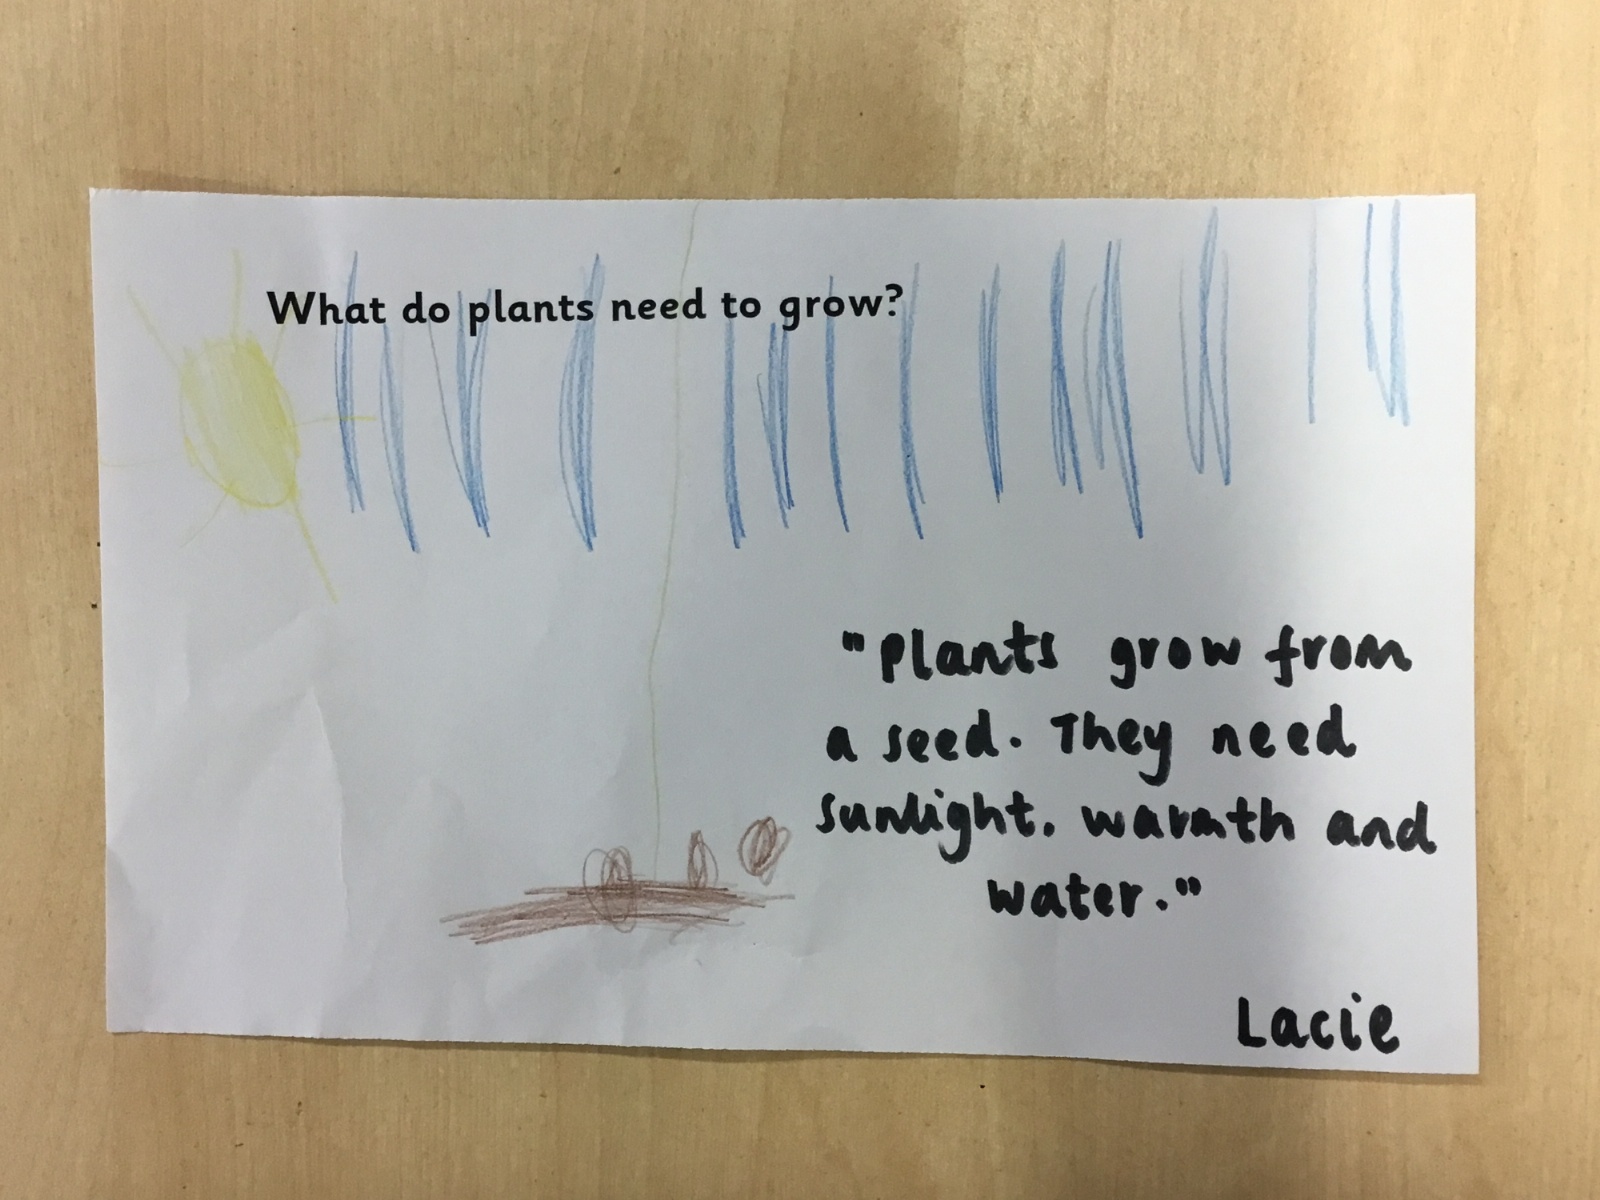 What do plants need to grow?
"Plants grow from
a seed. They need
sunlight. warmth and
water."
Lacie